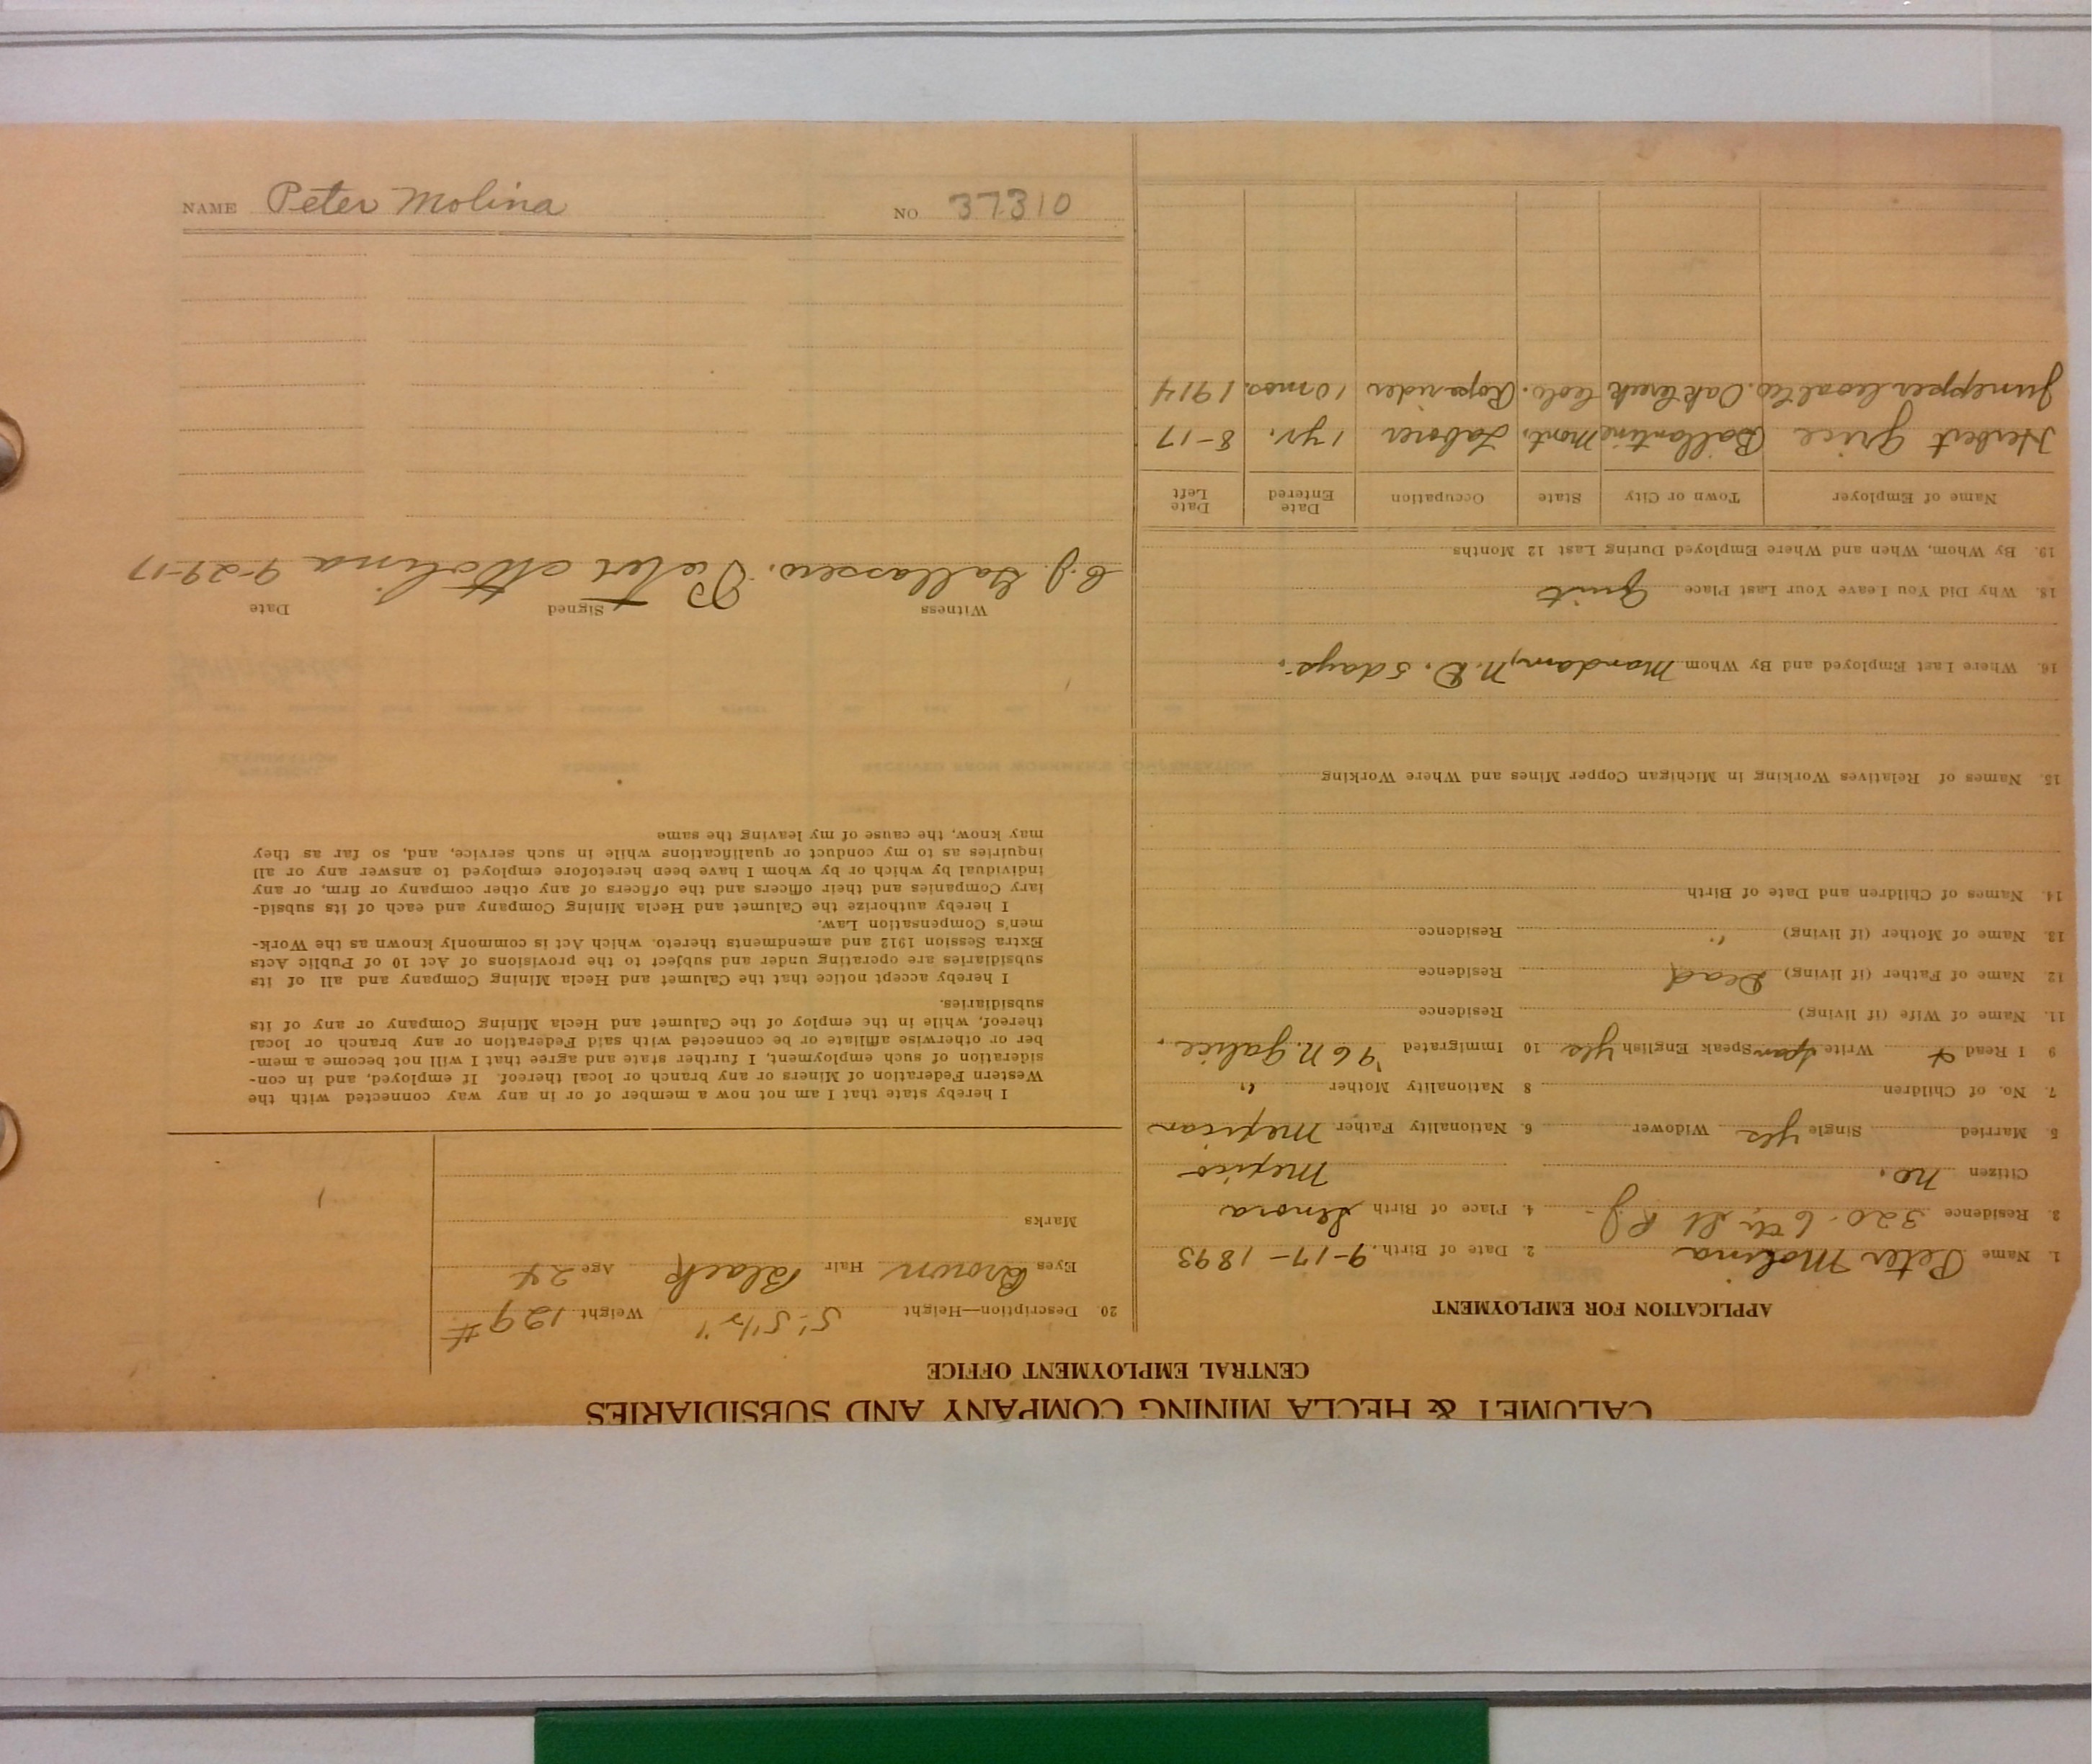 CALUMET & HECLA MINING COMPANY AND SUBSIDIARIES
CENTRAL EMPLOYMENT OFFICE
APPLICATION FOR EMPLOYMENT
1. Name Peter Molina 2. Date of Birth 9-17-1893
3. Residence 320-6th St R.J. 4. Place of Birth Senora
Citizen no. Mexico
5. Married Single yes Widower 6. Nationality Father Mexican
7. No. of Children 8 Nationality Mother "
9 I Read & Write Span Speak English yes 10 Immigrated '96 N.
11. Name of Wife (if living) Residence
12. Name of Father (if living) Dead Residence
13. Name of Mother (if living) " Residence
14. Names of Children and Date of Birth
15. Names of Relatives Working in Michigan Copper Mines and Where Working
16. Where Last Employed and By Whom Mandam, N.D. 5 days.
18. Why Did You Leave Your Last Place Quit
19. By Whom, When and Where Employed During Last 12 Months
Name of Employer Town or City State Occupation Date Entered Date Left
Herbert Grice Ballantine Mont. Laborer 1 yr. 8-17
Junepper Coal Co. Oak Creek Colo. Rope rider 10 mos. 1914
20. Description—Height 5'-5 1/2" Weight 129 #
Eyes Brown Hair Black Age 24
Marks
I hereby state that I am not now a member of or in any way connected with the
Western Federation of Miners or any branch or local thereof. If employed, and in con-
sideration of such employment, I further state and agree that I will not become a mem-
ber or otherwise affiliate or be connected with said Federation or any branch or local
thereof, while in the employ of the Calumet and Hecla Mining Company or any of its
subsidiaries.
I hereby accept notice that the Calumet and Hecla Mining Company and all of its
subsidiaries are operating under and subject to the provisions of Act 10 of Public Acts
Extra Session 1912 and amendments thereto. which Act is commonly known as the Work-
men's Compensation Law.
I hereby authorize the Calumet and Hecla Mining Company and each of its subsid-
iary Companies and their officers and the officers of any other company or firm, or any
individual by which or by whom I have been heretofore employed to answer any or all
inquiries as to my conduct or qualifications while in such service, and, so far as they
may know, the cause of my leaving the same
Witness Signed Date
Peter Molina 9-29-17
NAME Peter Molina NO 37310